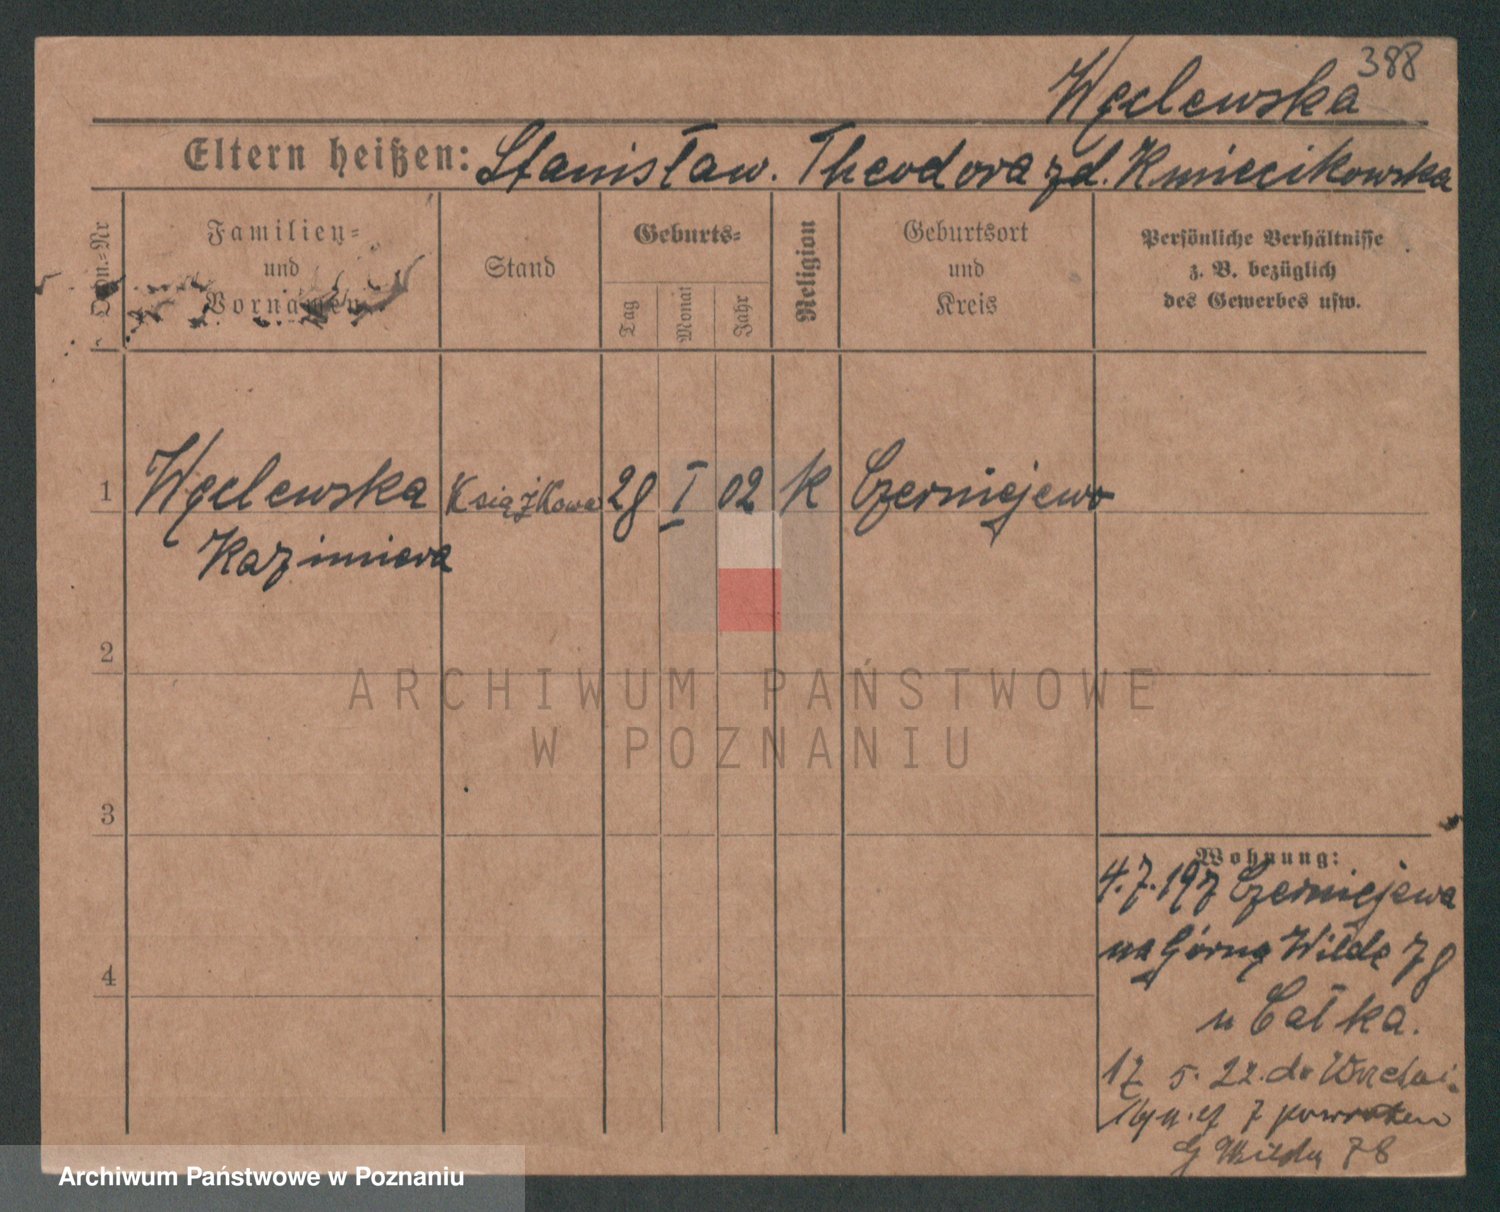 388
Węclewska
Eltern heißen: Stanisław. Theodora zd. Kmiecikowska
Ord.-Nr
Familien-
und
Vornamen
Stand
Geburts-
Tag
Monat
Jahr
Religion
Geburtsort
und
Kreis
Persönliche Verhältnisse
z. B. bezüglich
des Gewerbes usw.
1 Węclewska Książkowa 28 I 02 K Czerniejewo
Kazimiera
2
3
4
Wohnung:
4.7.197 Czerniejewa
na Górną Wildę 78
u Całka.
17 5. 22. do
z
G Wilda 78
ARCHIWUM PAŃSTWOWE
W POZNANIU
Archiwum Państwowe w Poznaniu